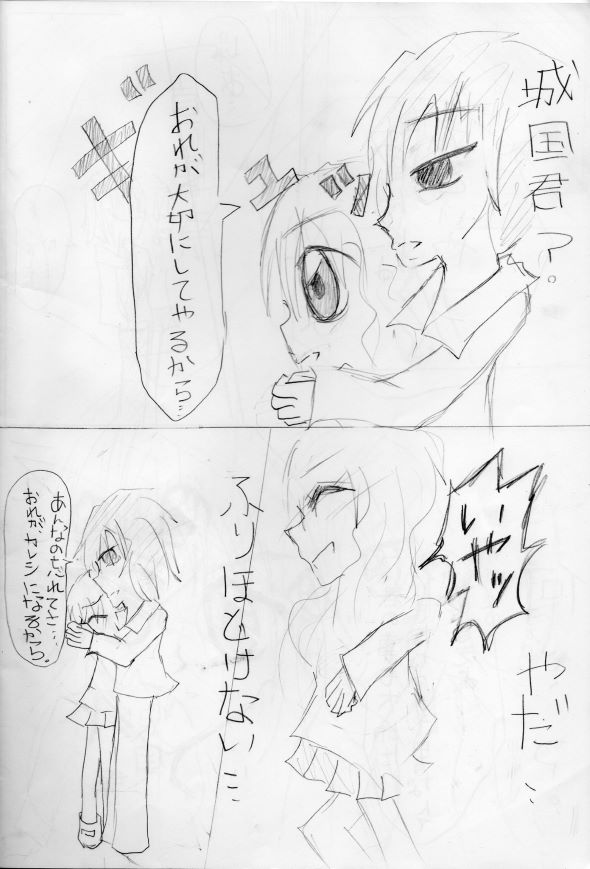 城国君?
おれが大切にしてやるから…
ギュッ
いやッ
やだ…
ふりほどけない…
あんなの忘れてさ…
おれがカレシになるから。